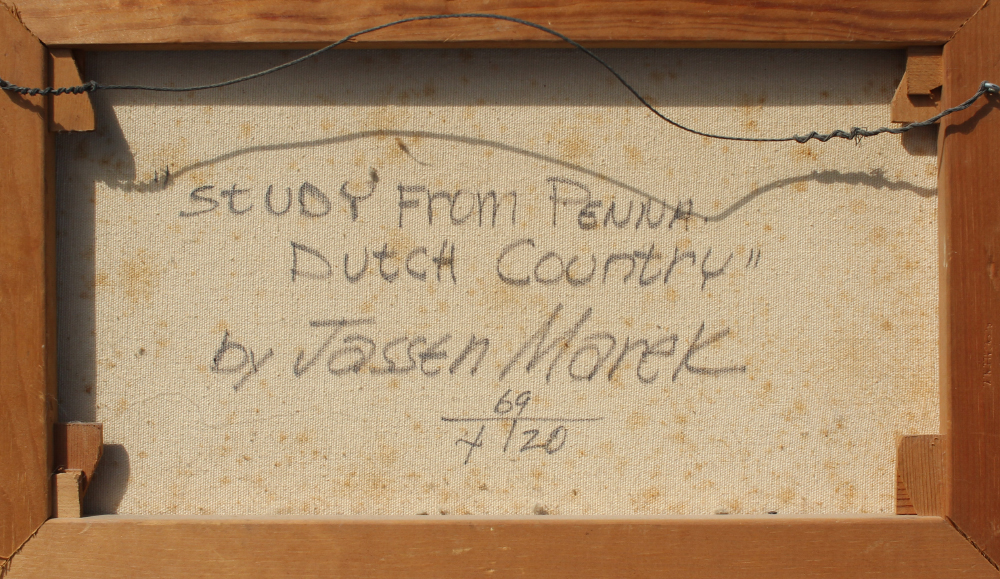 "STUDY From PENNA.
DUTCH Country"
by Jassen Marek
69
4/20